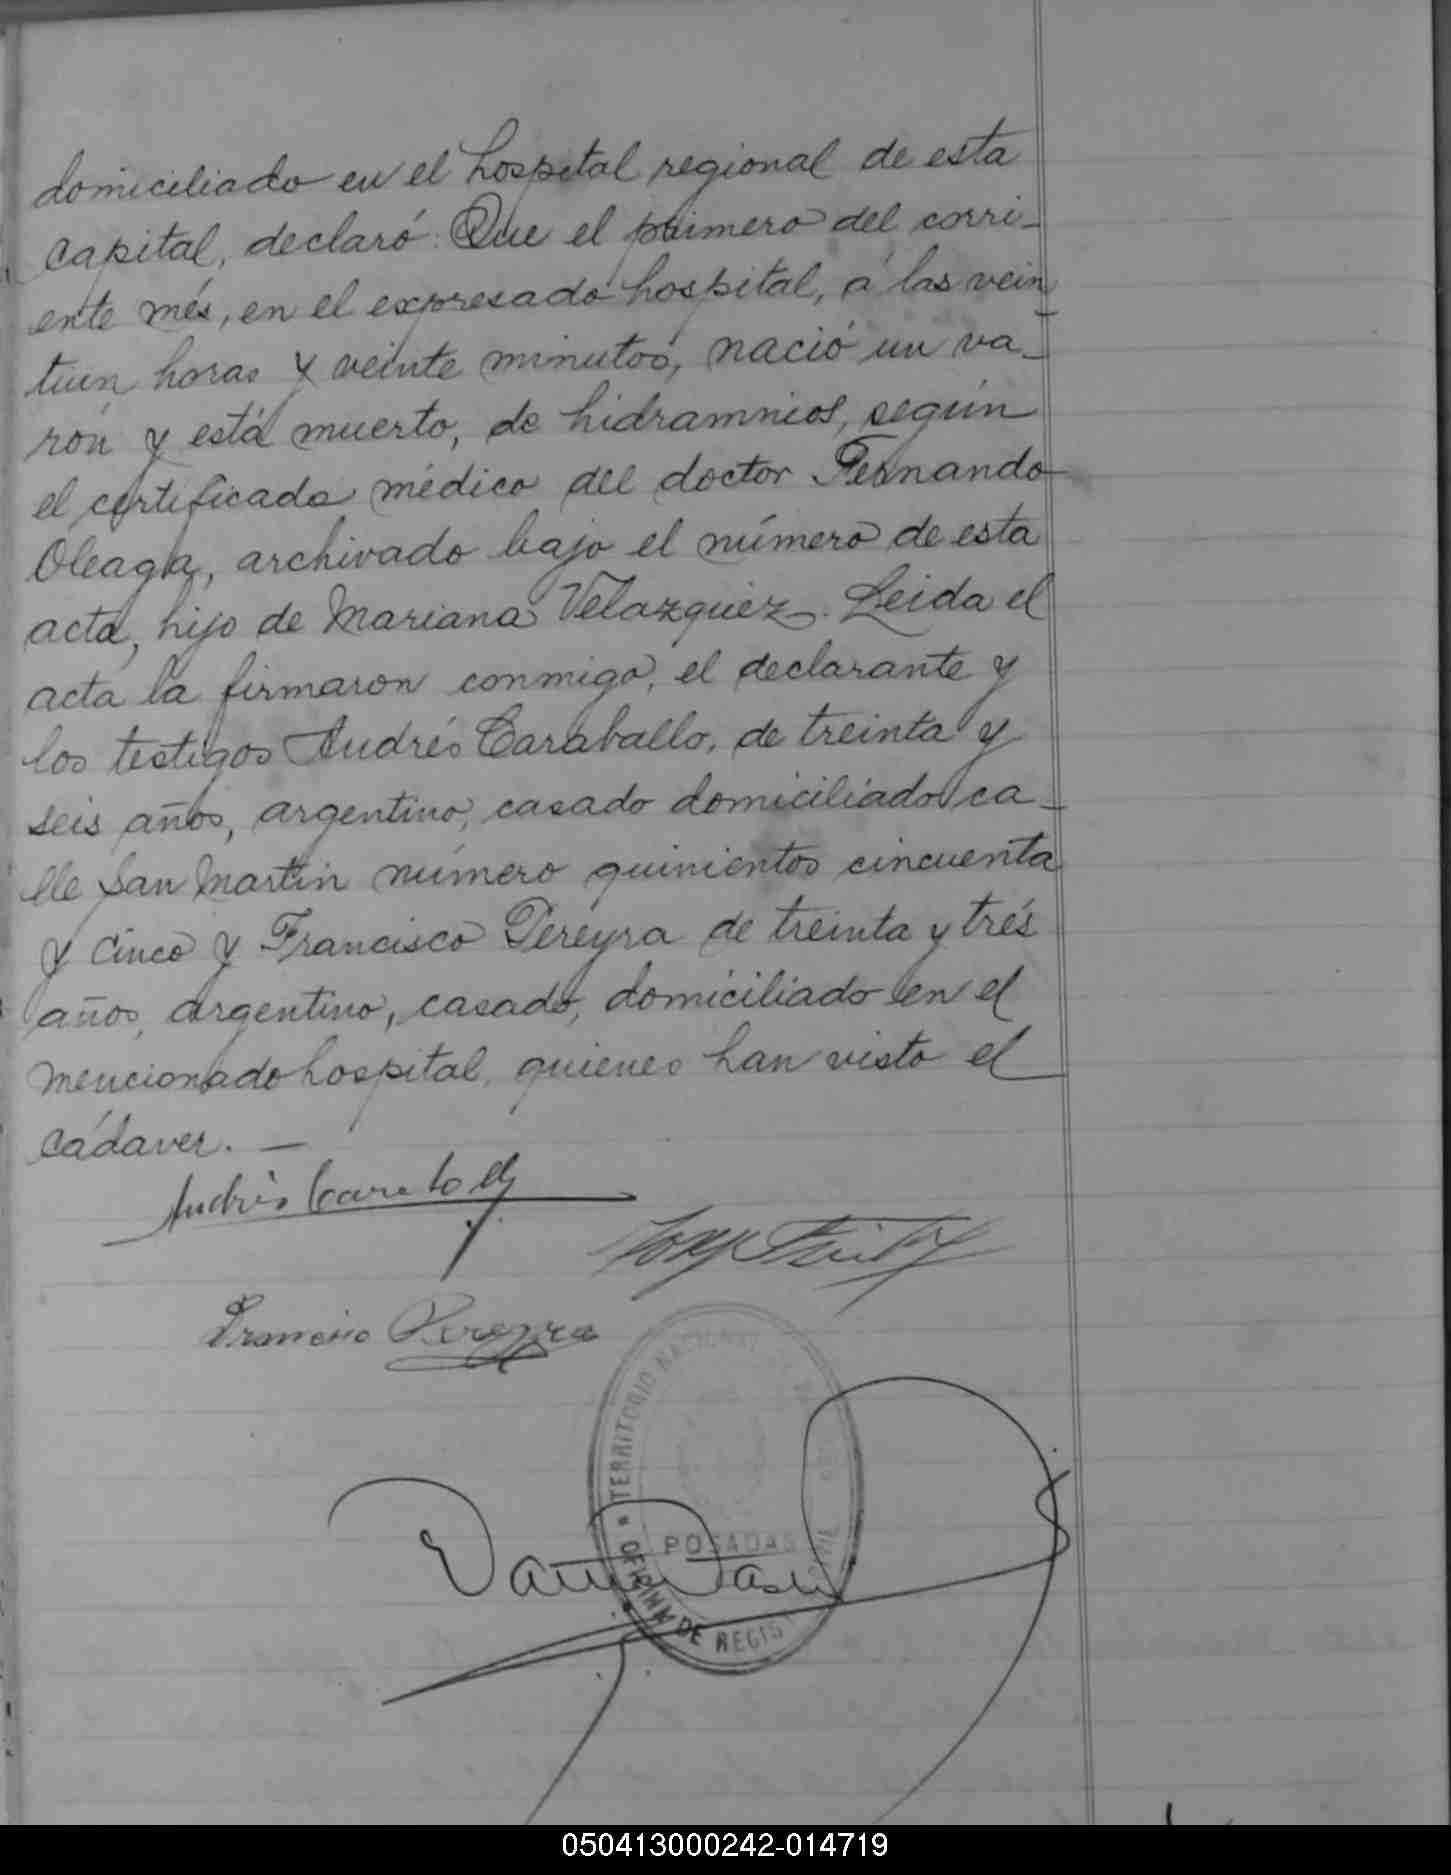 domiciliado en el hospital regional de esta
capital, declaró: Que el primero del corri-
ente més, en el expresado hospital, á las vein
tiun horas y veinte minutos, nació un va-
rón y está muerto, de hidramnios, según
el certificado médico del doctor Fernando
Oleaga, archivado bajo el número de esta
acta, hijo de Mariana Velazquez. Leida el
acta la firmaron conmigo, el declarante y
los testigos Andrés Caraballo, de treinta y
seis años, argentino, casado domiciliado ca-
lle San Martin número quinientos cincuenta
y cinco y Francisco Pereyra de treinta y trés
años, argentino, casado, domiciliado en el
mencionado hospital, quienes han visto el
cádaver. —
Andrés Caraballo
Francisco Pereyra
TERRITORIO NACIONAL
POSADAS
OFICINA DE REGIST
050413000242-014719